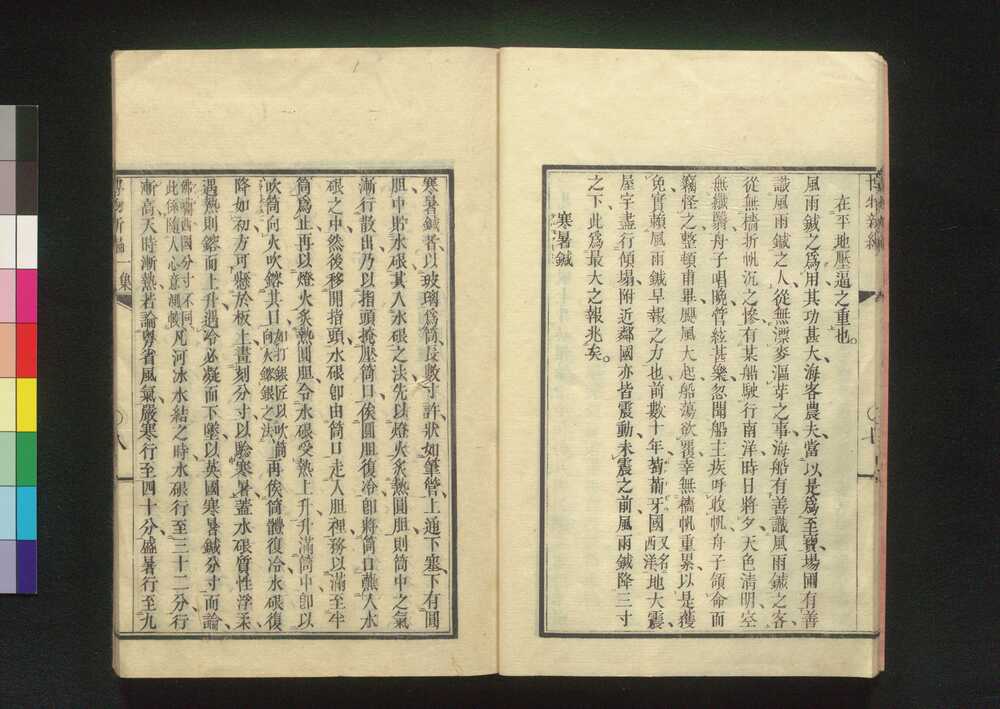 在平地壓逼之重也。
風雨鍼之爲用其功甚大海客農夫當以是爲至寶場圃有善
識風雨鍼之人從無漂麥漚芽之事海船有善識風雨鍼之客
從無檣折帆沉之慘有某船駛行南洋時日將夕天色清明空
無纖翳舟子唱晚管絃甚樂忽聞船主疾呼收帆舟子領命而
竊怪之整頓甫畢颶風大起船蕩欲覆幸無檣帆重累以是獲
免實賴風雨鍼早報之力也前數十年葡萄牙國又名西洋地大震
屋宇盡行傾塌附近鄰國亦皆震動未震之前風雨鍼降三寸
之下此爲最大之報兆矣。
寒暑鍼
寒暑鍼者以玻璃爲筒長數寸許狀如筆管上通下塞下有圓
胆中貯水銀其入水銀之法先以燈火炙熱圓胆則筒中之氣
漸行散出乃以指頭掩壓筒口俟圓胆復冷卽將筒口蘸入水
銀之中然後移開指頭水銀卽由筒口走入胆裡務以滿至半
筒爲止再以燈火炙熱圓胆令水銀受熱上升升滿筒中卽以
吹筒向火吹鎔其口如打銀匠以吹筒向火鎔銀之法再俟筒體復冷水銀復
降如初方可懸於板上畫刻分寸以驗寒暑蓋水銀質性浮柔
遇熱則鎔而上升遇冷必凝而下墜以英國寒暑鍼分寸而論
佛蘭西國分寸不同此係隨人心意規製凡河冰水結之時水銀行至三十二分行
漸高天時漸熱若論粵省風氣嚴寒行至四十分盛暑行至九
博物新編 一集 〇 八